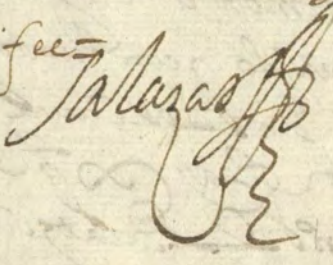 fee=
Salazar